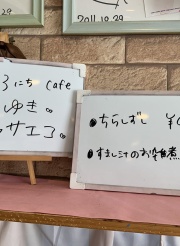 2011.10.29
3にち cafe
ゆき
サエコ
•ちらしずし ¥
•すまし汁のお雑煮